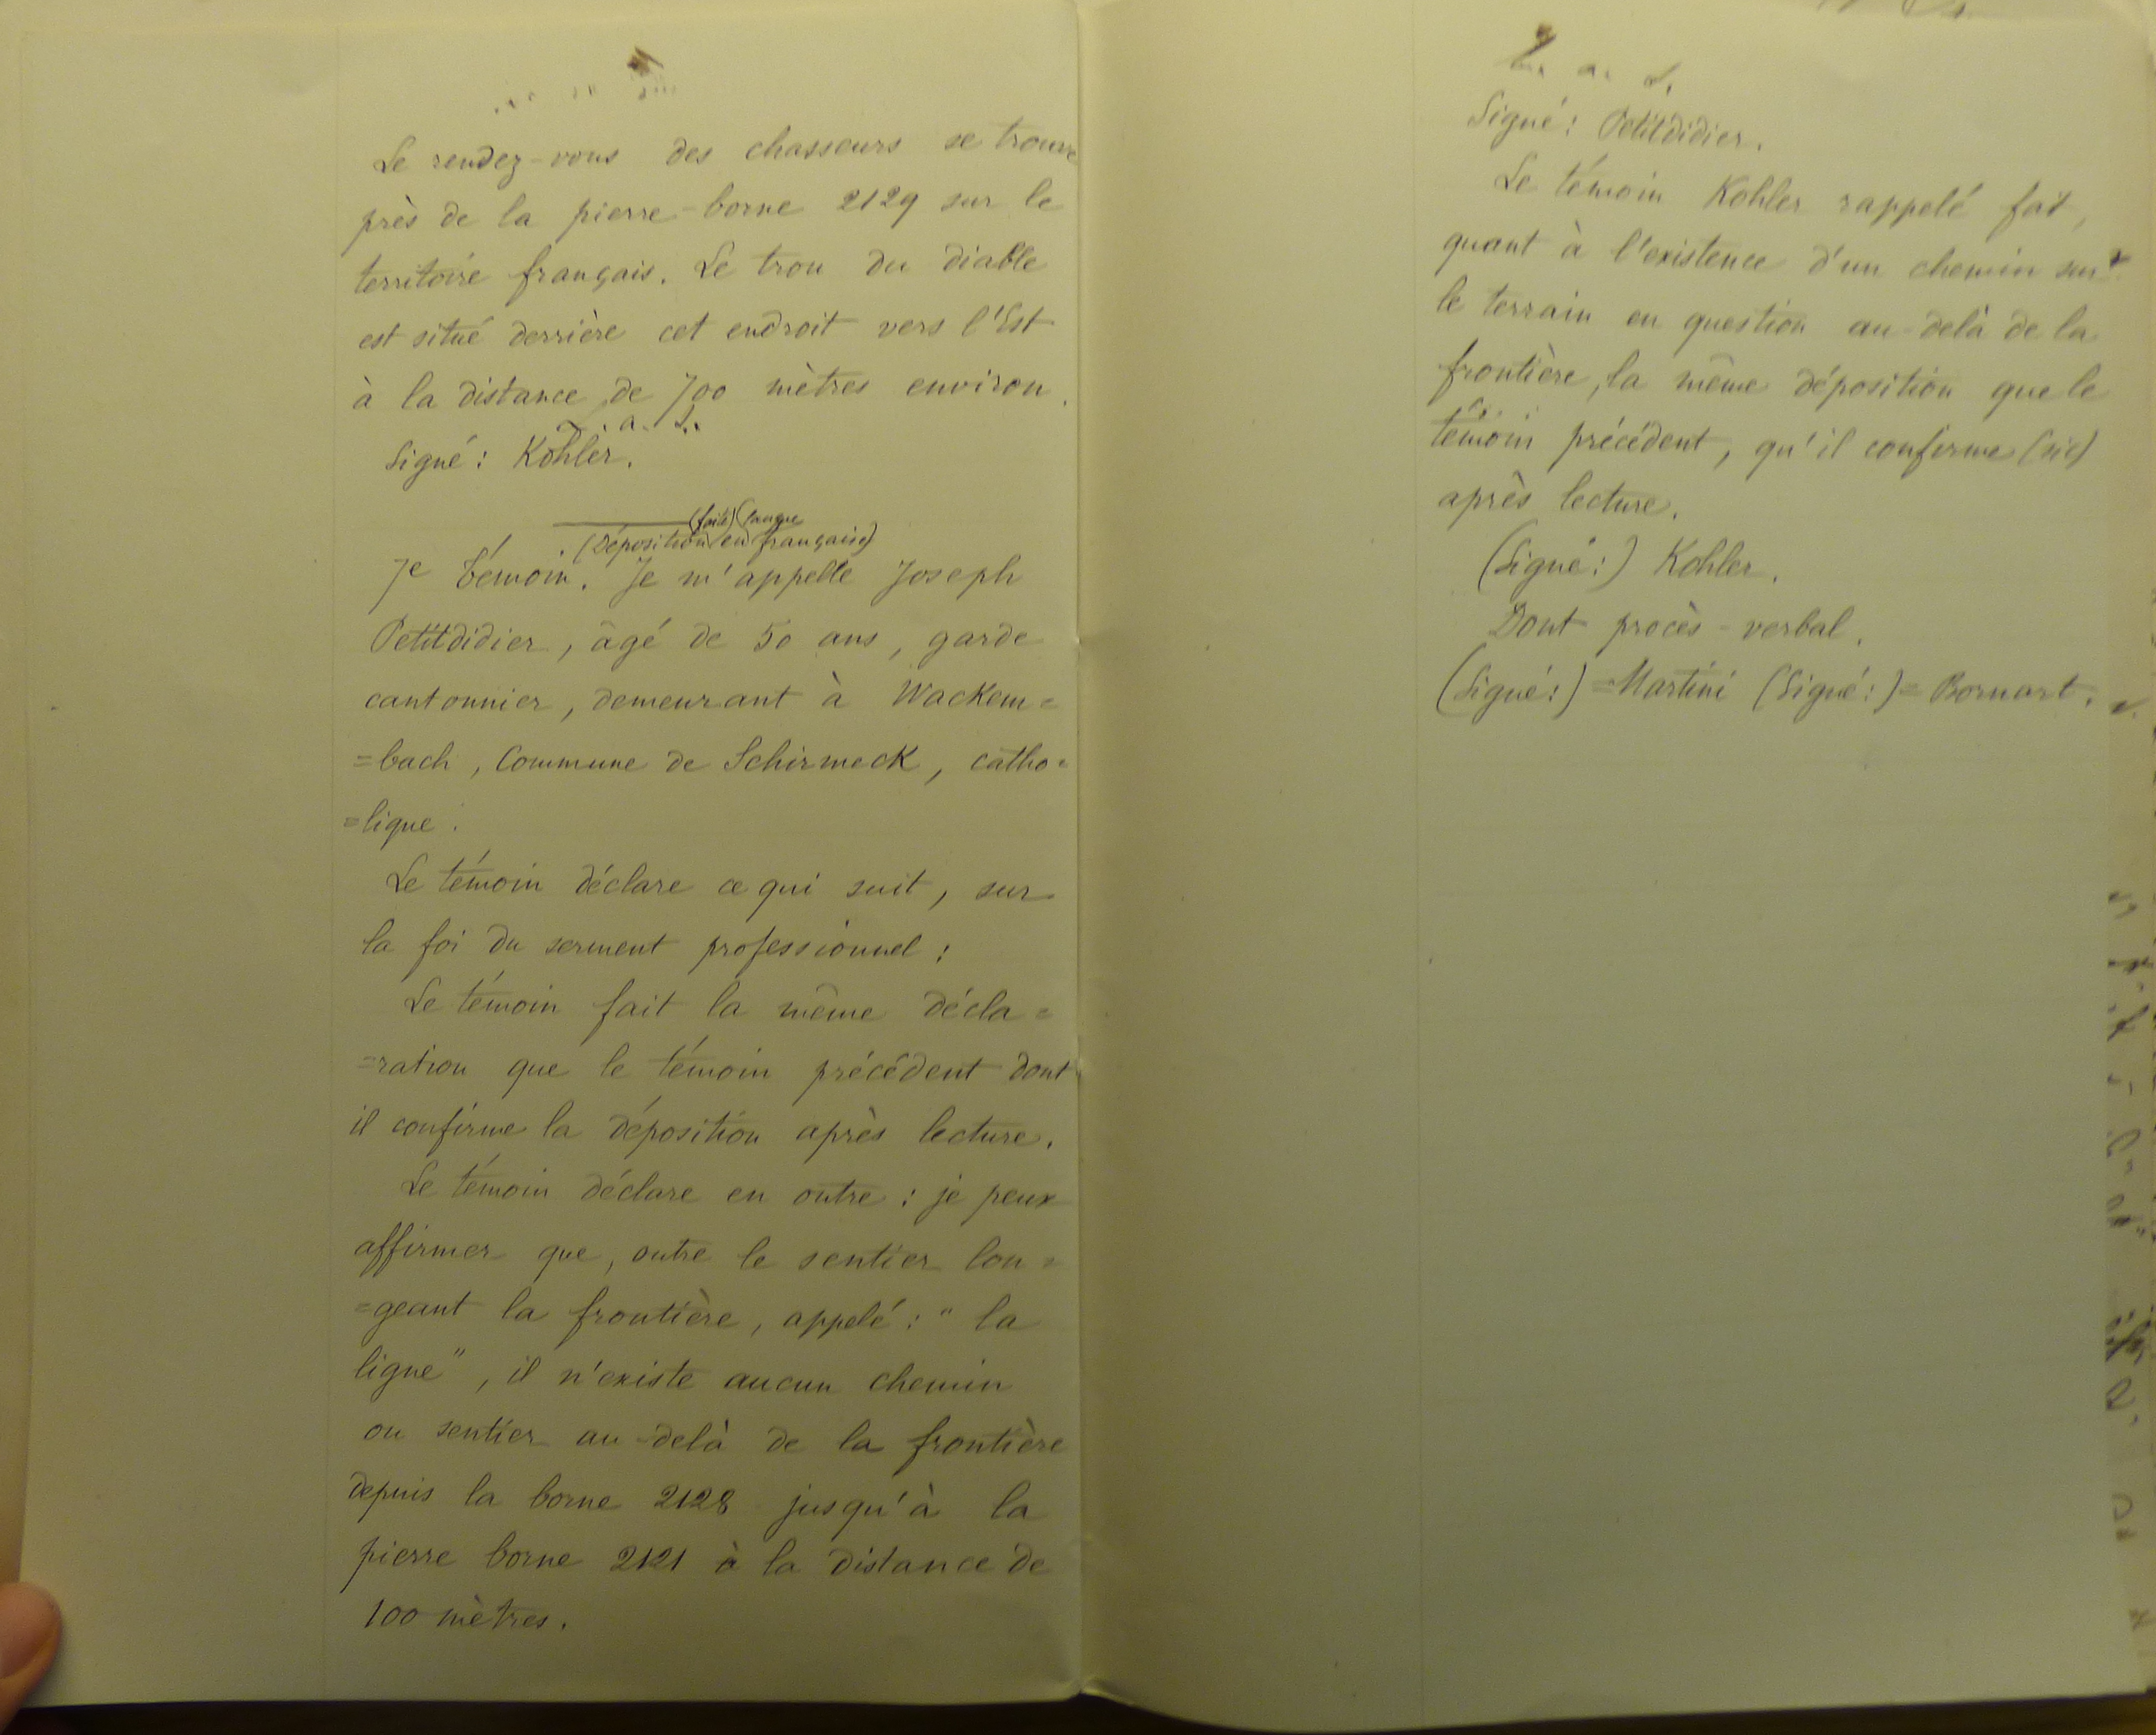 Le rendez-vous des chasseurs se trouve
près de la pierre-borne 2129 sur le
territoire français. Le trou du diable
est situé derrière cet endroit vers l'Est
à la distance de 700 mètres environ.
a. S.
Signé: Kohler.
(faite) (langue
(Déposition en française)
7e témoin. Je m'appelle Joseph
Petitdidier, âgé de 50 ans, garde
cantonnier, demeurant à Wackem=
=bach, Commune de Schirmeck, catho=
=lique.
Le témoin déclare ce qui suit, sur
la foi du serment professionnel:
Le témoin fait la même décla=
=ration que le témoin précédent dont
il confirme la déposition après lecture.
Le témoin déclare en outre: je peux
affirmer que, outre le sentier lon=
=geant la frontière, appelé: "la
ligne", il n'existe aucun chemin
ou sentier au-delà de la frontière
depuis la borne 2128 jusqu'à la
pierre borne 2121 à la distance de
100 mètres.
a. S.
Signé: Petitdidier.
Le témoin Kohler rappelé fait,
quant à l'existence d'un chemin sur
le terrain en question au delà de la
frontière, la même déposition que le
témoin précédent, qu'il confirme (sic)
après lecture.
(Signé:) Kohler.
Dont procès-verbal.
(Signé:) = Martini (Signé:) = Bornart.